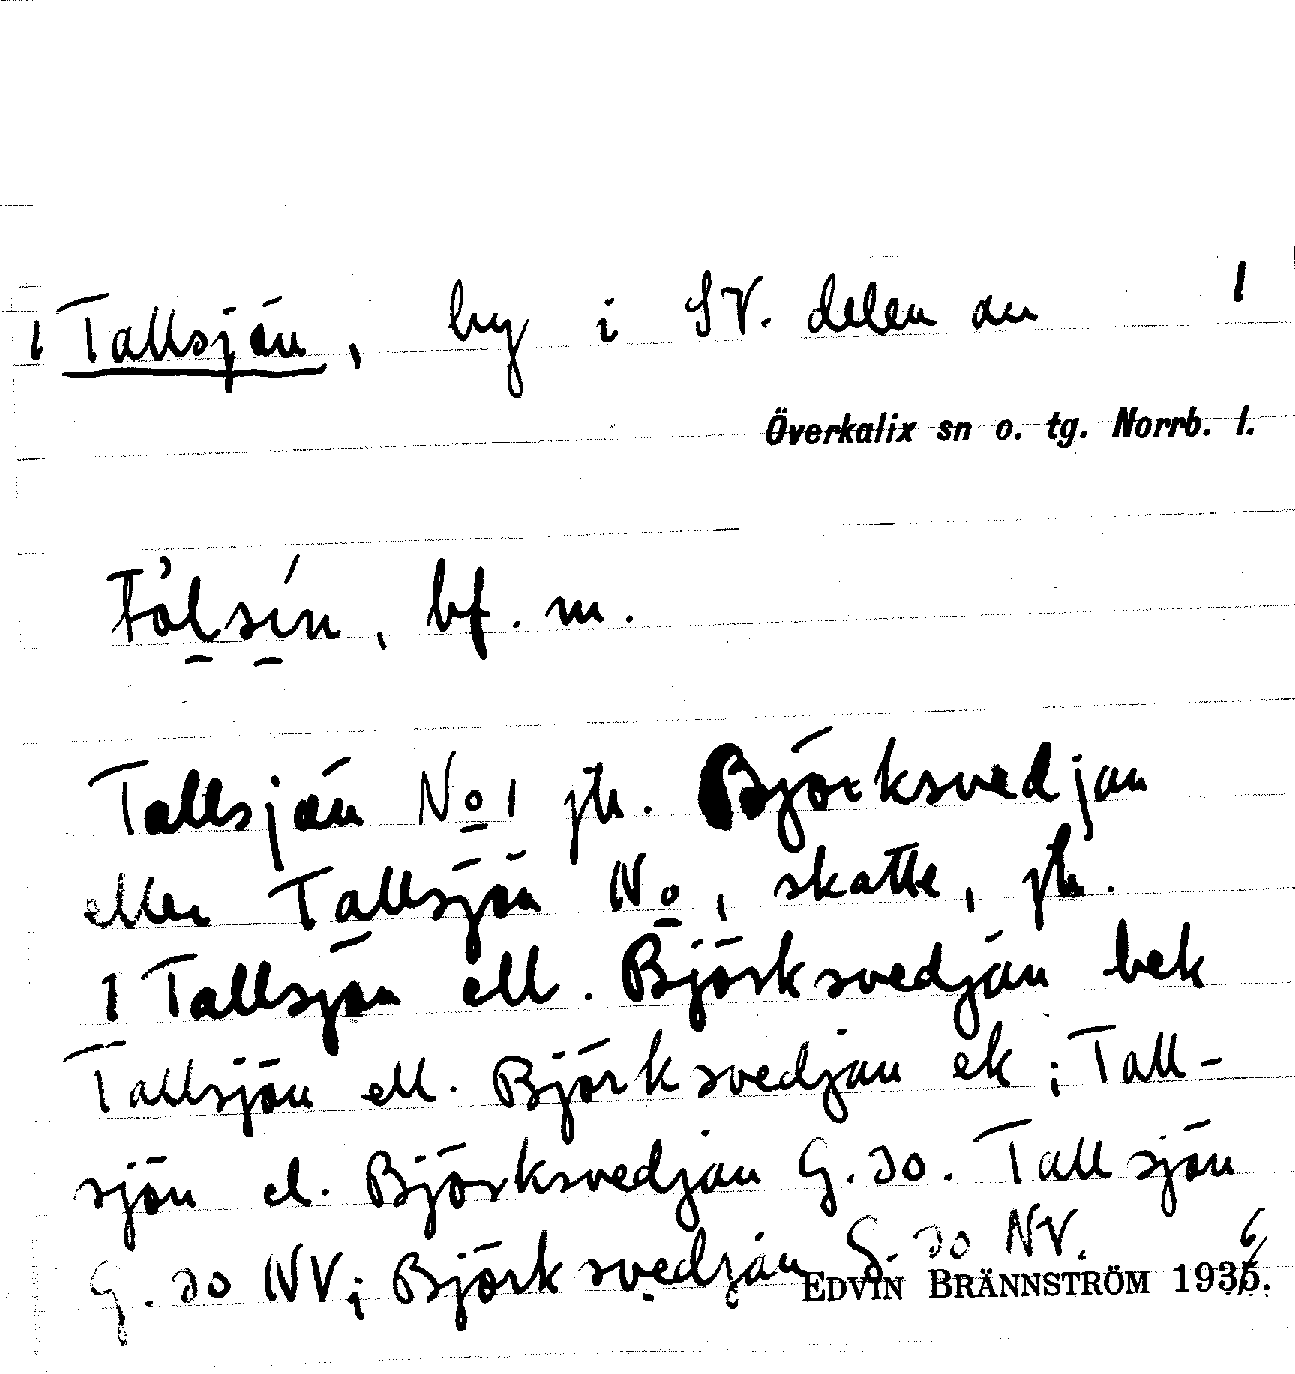 1 Tallsjön, by i SV. delen av 1
Överkalix sn o. tg. Norrb. l.
bf. m.
Tallsjön No 1 jb. Björksvedjan
eller Tallsjön No 1 skatte, jb.
1 Tallsjön ell. Björksvedjan bek
Tallsjön ell. Björksvedjan ek; Tall-
sjön el. Björksvedjan G. do. Tallsjön
G. do NV; Björksvedjan G. do NV.
EDVIN BRÄNNSTRÖM 1936.